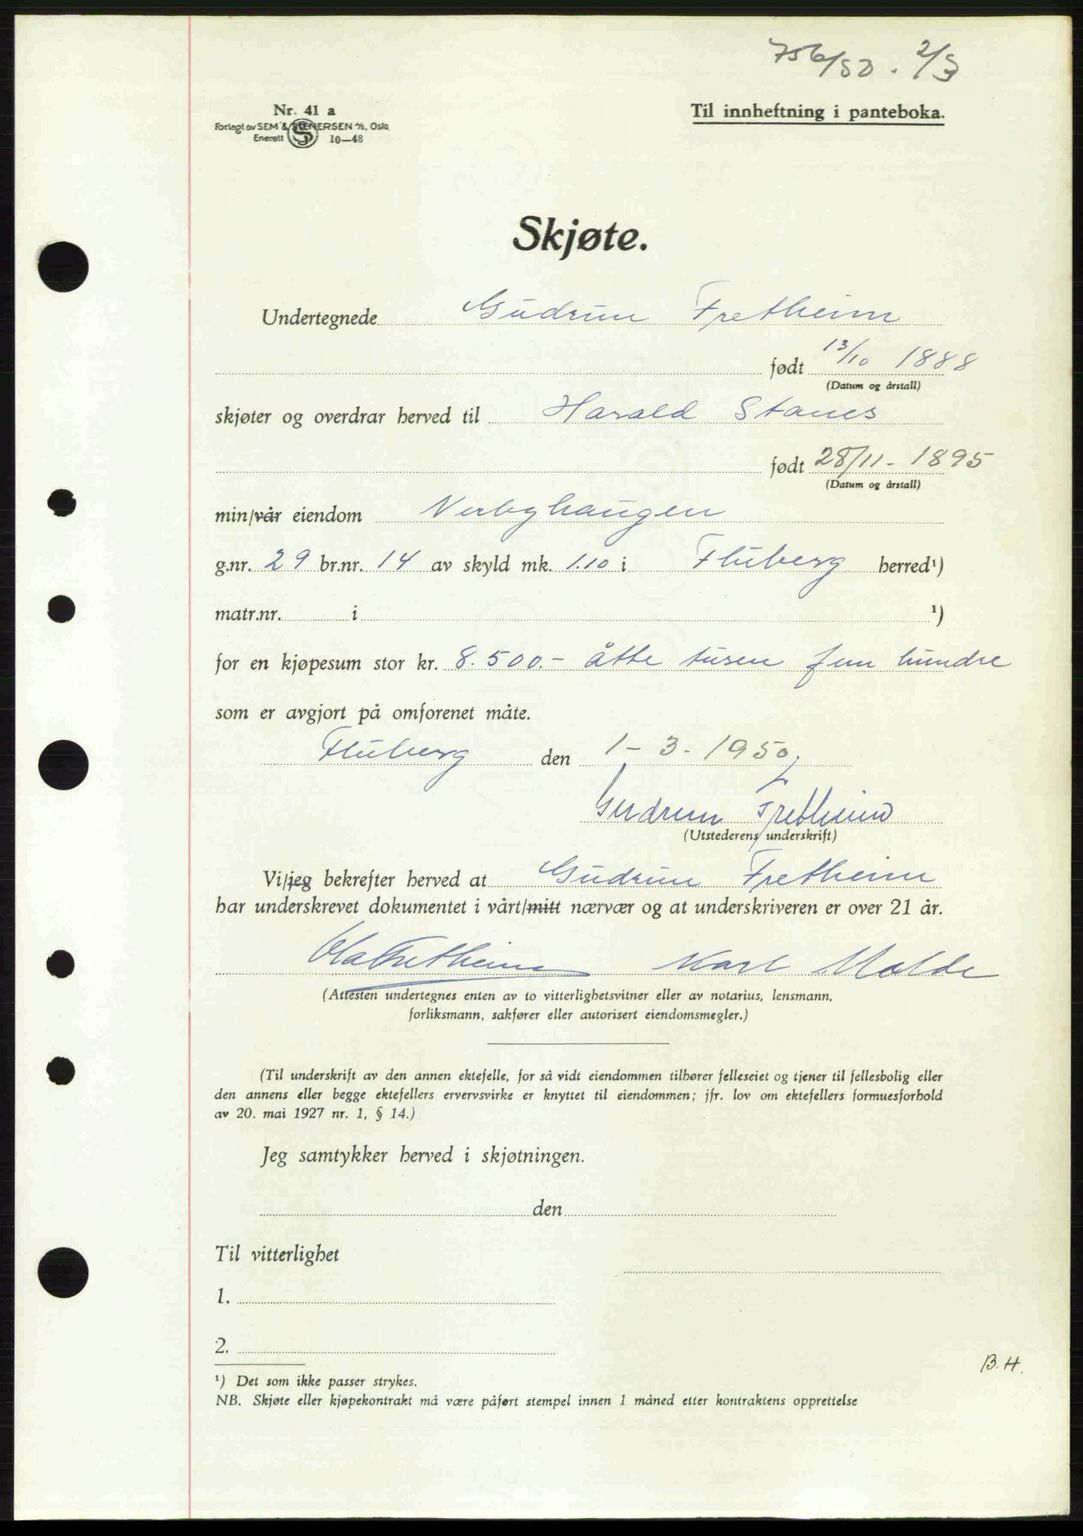 756/50. 2/3
Nr. 41 a
Forlagt av SEM & STENERSEN A/S, Oslo
Enerett S 10—48
Til innheftning i panteboka.
Skjøte.
Undertegnede Gudrun Fretheim
født 13/10 1888
(Datum og årstall)
skjøter og overdrar herved til Harald Stanes
født 28/11- 1895
(Datum og årstall)
min/vår eiendom Nerbyhaugen
g.nr. 29 br.nr. 14 av skyld mk. 1.10 i Fluberg herred¹)
matr.nr. i ¹)
for en kjøpesum stor kr. 8.500.- åtte tusen fem hundre
som er avgjort på omforenet måte.
Fluberg den 1-3-1950.
Gudrun Fretheim
(Utstederens underskrift)
Vi/jeg bekrefter herved at Gudrun Fretheim
har underskrevet dokumentet i vårt/mitt nærvær og at underskriveren er over 21 år.
Ola Fretheim Karl Molde
(Attesten undertegnes enten av to vitterlighetsvitner eller av notarius, lensmann,
forliksmann, sakfører eller autorisert eiendomsmegler.)
(Til underskrift av den annen ektefelle, for så vidt eiendommen tilhører felleseiet og tjener til fellesbolig eller
den annens eller begge ektefellers ervervsvirke er knyttet til eiendommen; jfr. lov om ektefellers formuesforhold
av 20. mai 1927 nr. 1, § 14.)
Jeg samtykker herved i skjøtningen.
den
Til vitterlighet
1.
2.
B.H.
¹) Det som ikke passer strykes.
NB. Skjøte eller kjøpekontrakt må være påført stempel innen 1 måned etter kontraktens opprettelse